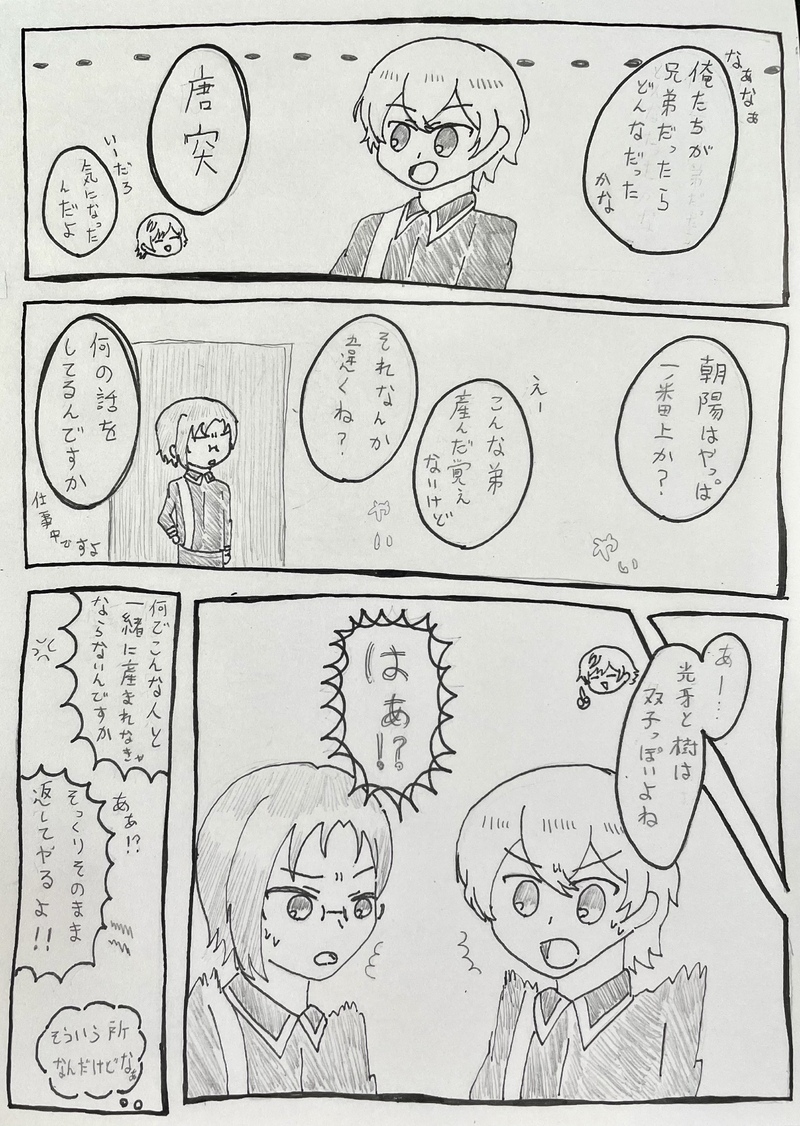 なぁなぁ
俺たちが
兄弟だったら
どんなだった
かな
唐突
いーだろ
気になった
んだよ
朝陽はやっぱ
一番上か？
やい
えー
こんな弟
産んだ覚え
ないけど
それなんか
違くね？
やい
何の話を
してるんですか
仕事中ですよ
あー…
光牙と樹は
双子っぽいよね
はあ!?
何でこんな人と
一緒に産まれなきゃ
ならないんですか
あぁ!?
そっくりそのまま
返してやるよ!!
そういう所
なんだけどなぁ